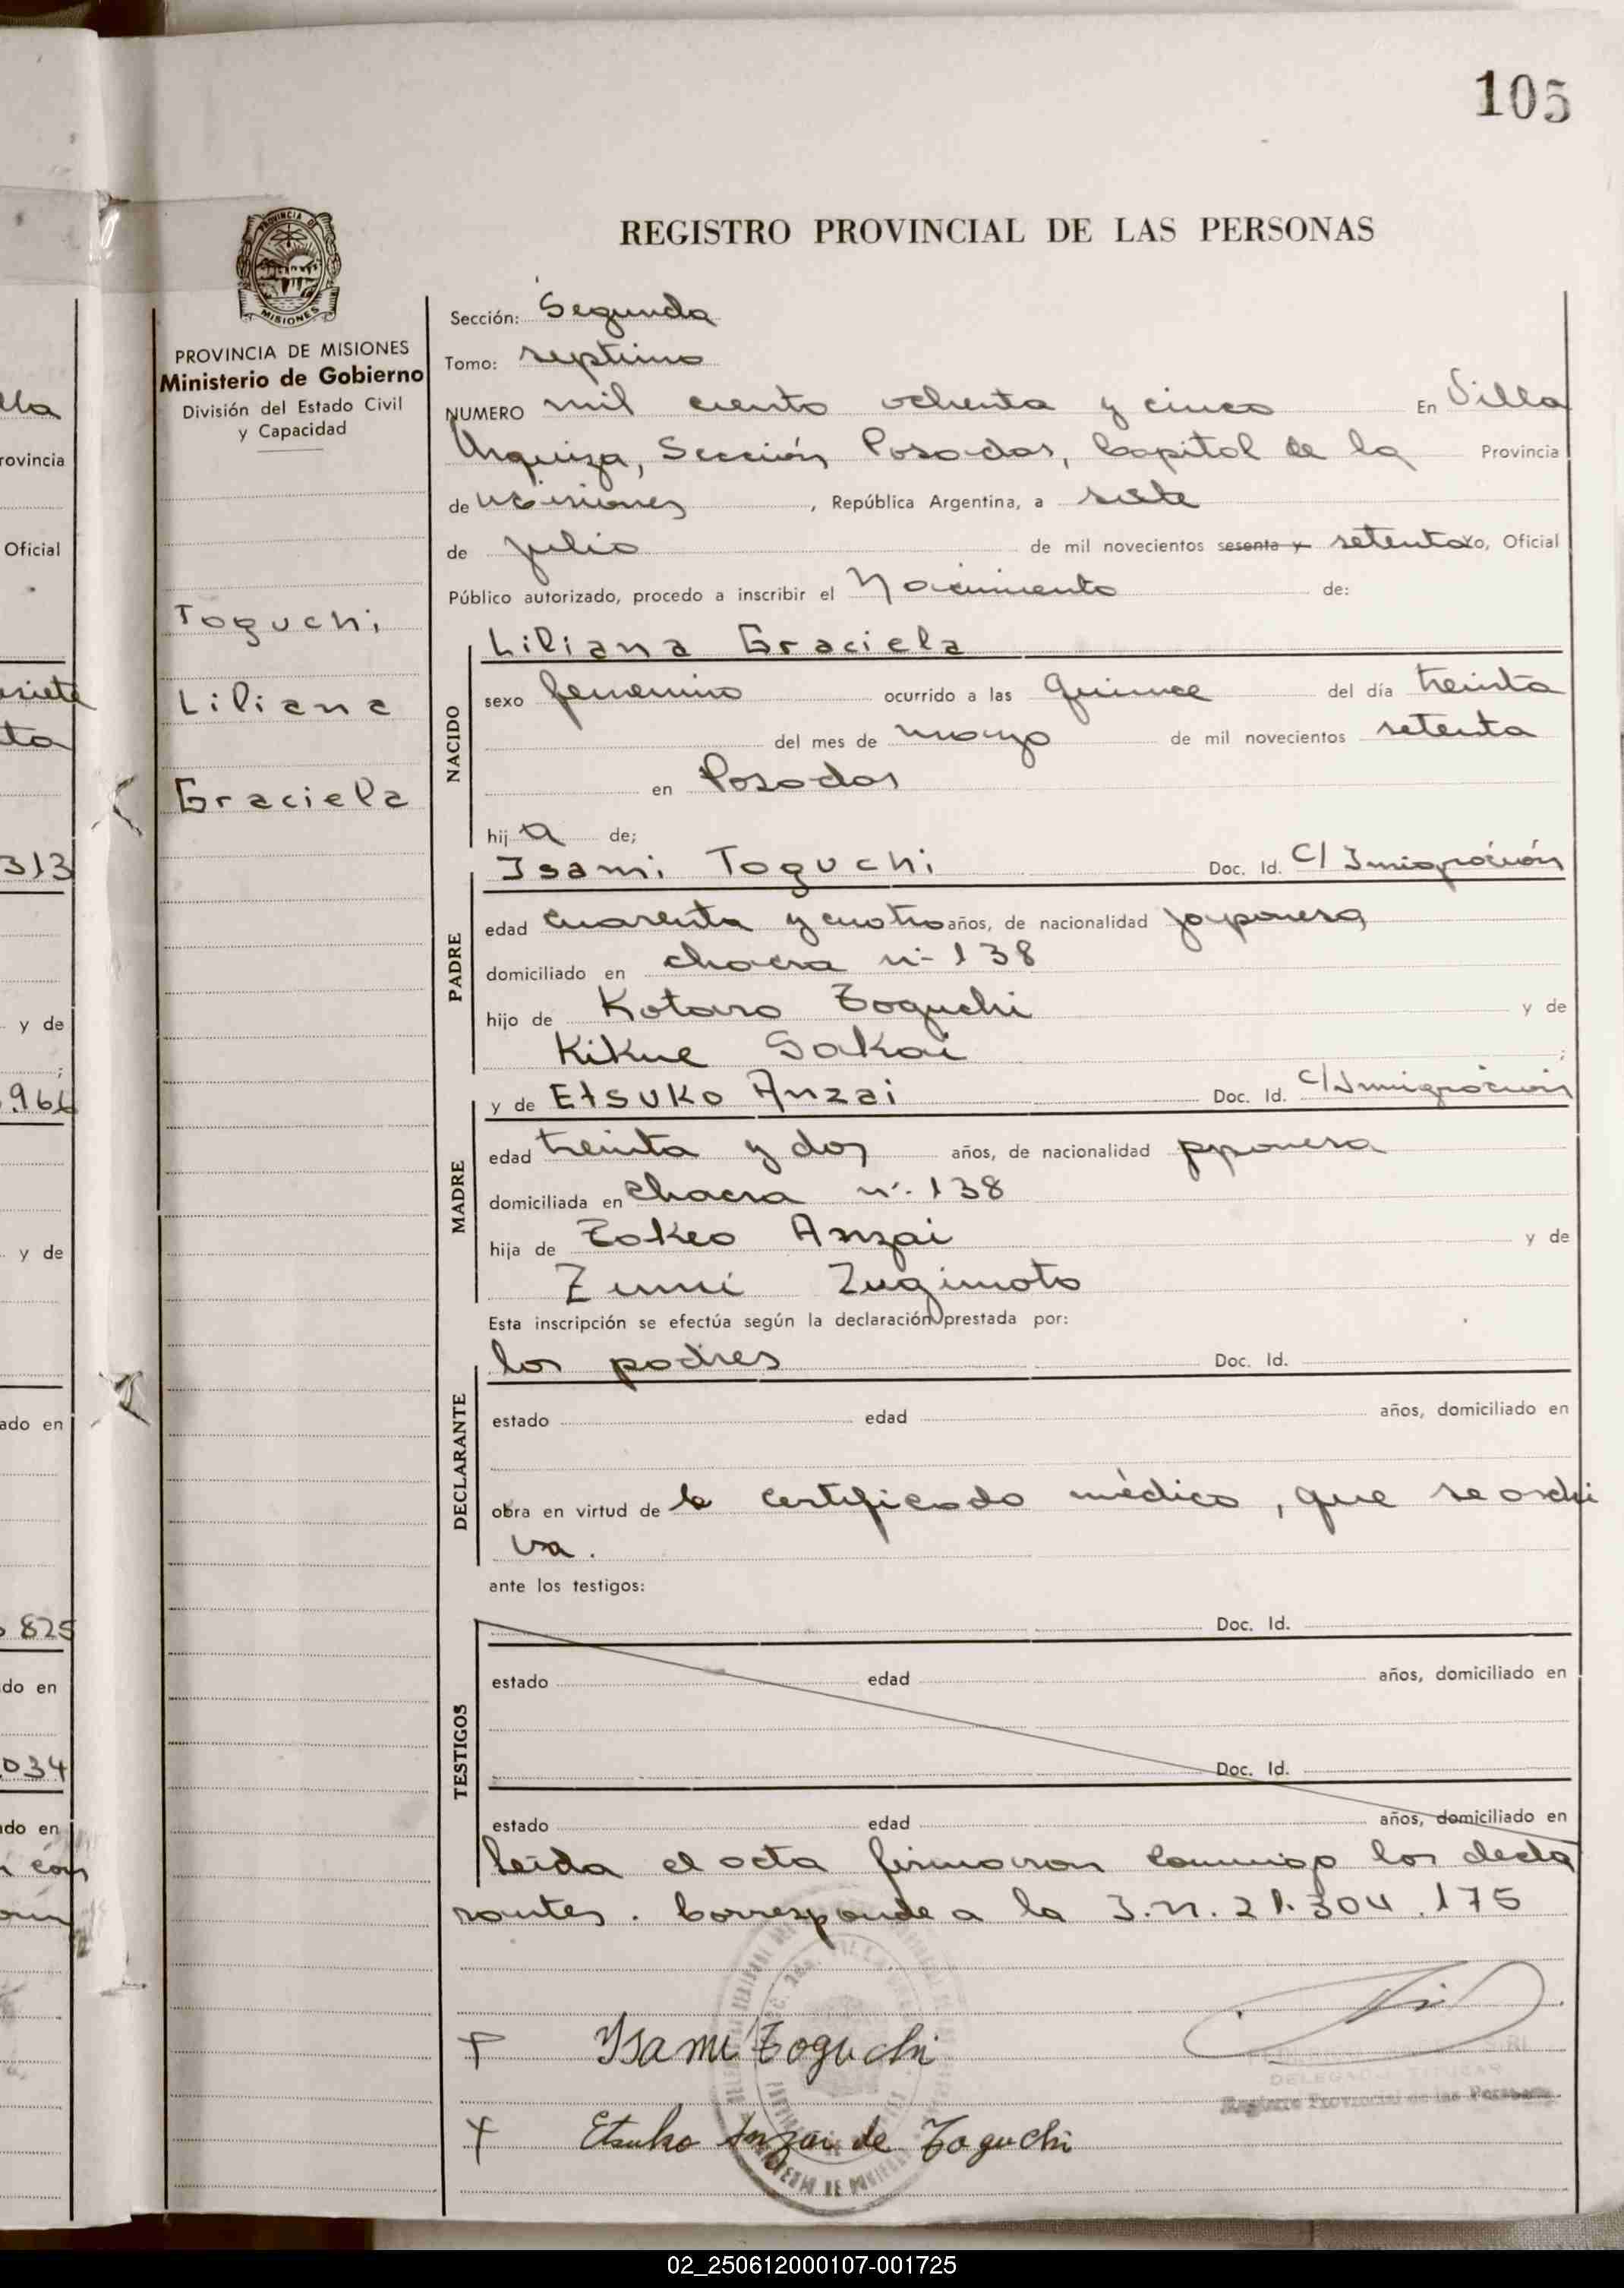 105
lla
rovincia
Oficial
siete
ta
313
y de
;
.966
y de
ado en
825
do en
034
do en
con
PROVINCIA DE
MISIONES
PROVINCIA DE MISIONES
Ministerio de Gobierno
División del Estado Civil
y Capacidad
Toguchi
Liliana
Graciela
REGISTRO PROVINCIAL DE LAS PERSONAS
Sección: Segunda
Tomo: septimo
NUMERO mil ciento ochenta y cinco En Villa
Urquiza, Sección Posadas, Capital de la Provincia
de Misiones, República Argentina, a siete
de julio de mil novecientos sesenta y setenta yo, Oficial
Público autorizado, procedo a inscribir el Nacimiento de:
NACIDO
Liliana Graciela
sexo femenino ocurrido a las quince del día treinta
del mes de mayo de mil novecientos setenta
en Posadas
hija de;
PADRE
Isami Toguchi Doc. Id. C/ Inmigración
edad cuarenta y cuatro años, de nacionalidad japonesa
domiciliado en chacra nº 138
hijo de Kotaro Toguchi y de
Kikue Sakai ;
MADRE
y de Etsuko Anzai Doc. Id. C/Inmigración
edad treinta y dos años, de nacionalidad japonesa
domiciliada en chacra nº. 138
hija de Tokeo Anzai y de
Zumi Zugimoto
Esta inscripción se efectúa según la declaración prestada por:
DECLARANTE
los padres Doc. Id.
estado edad años, domiciliado en
obra en virtud de le certificado médico, que se archi
va.
ante los testigos:
TESTIGOS
Doc. Id.
estado edad años, domiciliado en
Doc. Id.
estado edad años, domiciliado en
leída el acta firmaron conmigo los decla
rantes. Corresponde a la I.n. 21.304.175
Isami Toguchi
DELEGADO TITULAR
Registro Provincial de las Personas
Etsuko Anzai de Toguchi
02_250612000107-001725